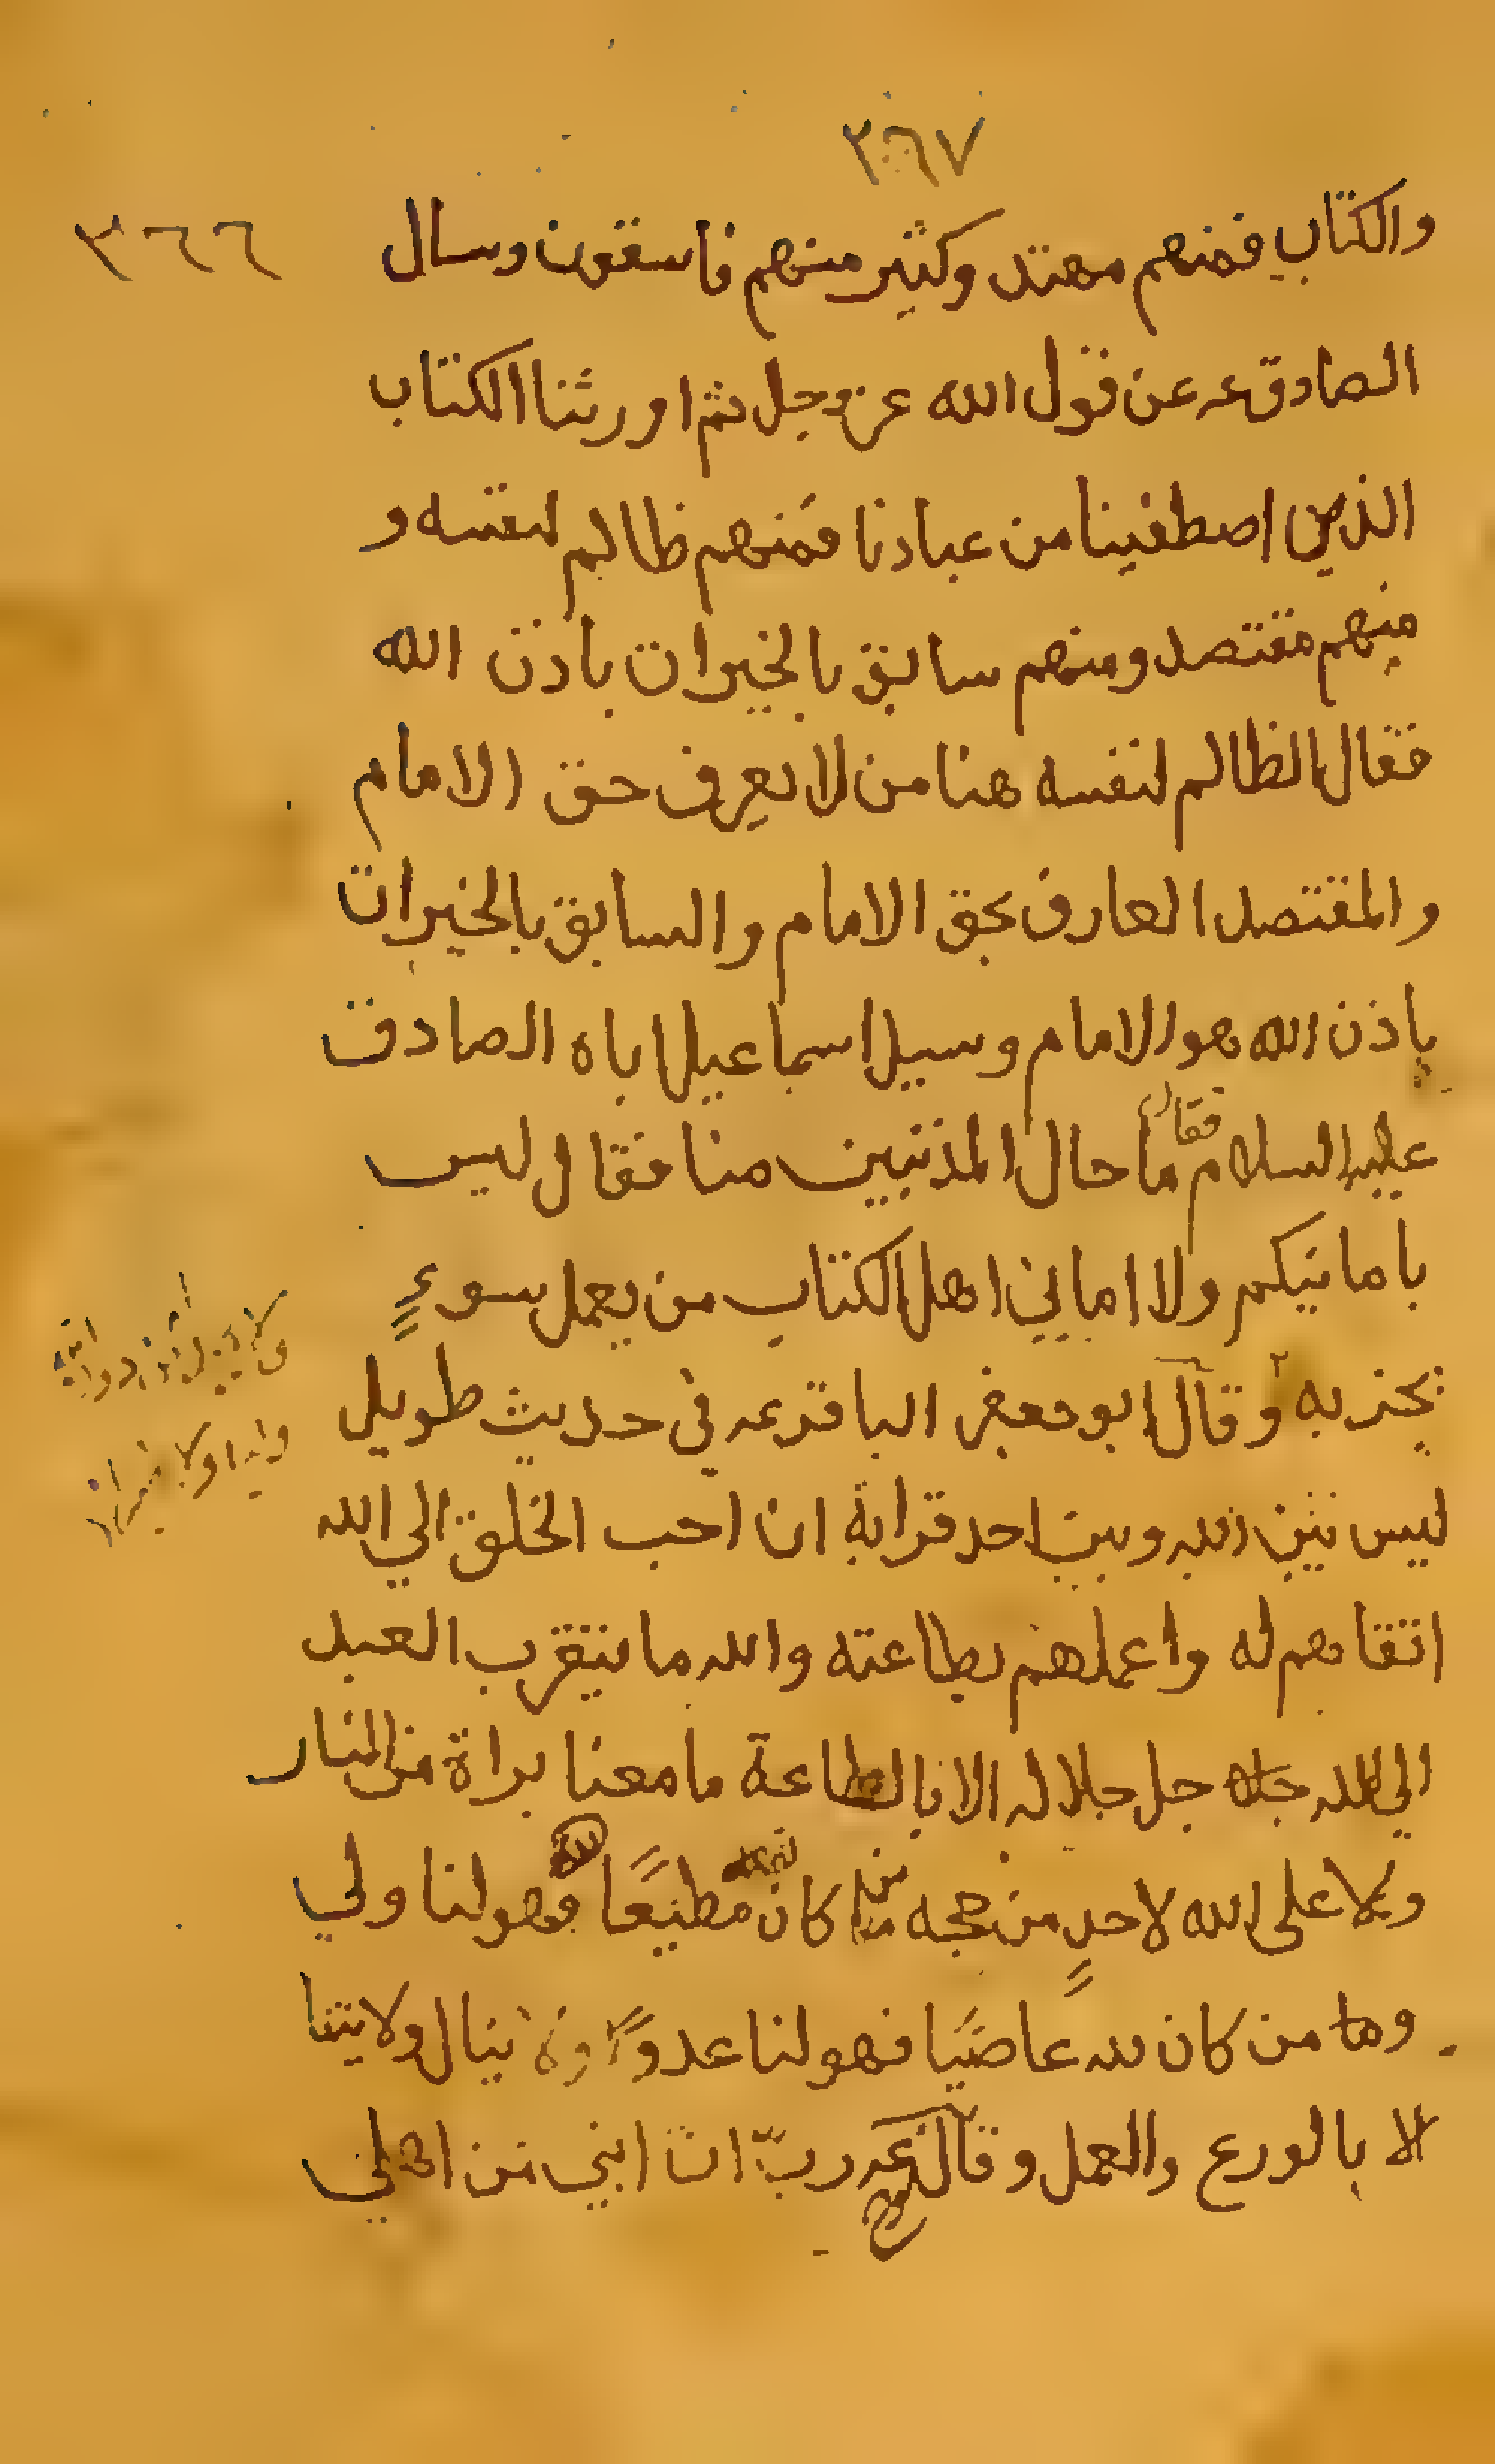 ٣٦٧
٣٦٦
والكتاب فمنهم مهتد وكثير منهم فاسقون وسال
الصادق عه عن قول الله عز وجل ثم اورثنا الكتاب
الذين اصطفينا من عبادنا فمنهم ظالم لنفسه و
منهم مقتصد ومنهم سابق بالخيرات باذن الله
فقال الظالم لنفسه هنا من لا يعرف حق الامام
والمقتصد العارف بحق الامام والسابق بالخيرات
باذن الله هو الامام وسيل اسماعيل اباه الصادق
عليه السلام فقال ما حال المذنبين منا فقال ليس
بامانيكم ولا اماني اهل الكتاب من يعمل سوءٍ
يجز به وقال ابو جعفر الباقر عه في حديث طويل
ليس بين الله وبين احد قرابة ان احب الخلق الي الله
اتقاهم له واعملهم بطاعته والله ما يتقرب العبد
الي الله جل جلاله الا بالطاعة ما معنا براة من النار
ولا على الله لاحدٍ من حجه من كان مطيعًا فهو لنا ولي
وما من كان لله عاصيًا فهو لنا عدوًا ولا ينال ولايتنا
الا بالورع والعمل وقال نوح عه ربّ ان ابني من اهلي
ولا يجد له من دون الله
وليا ولا نصيرا